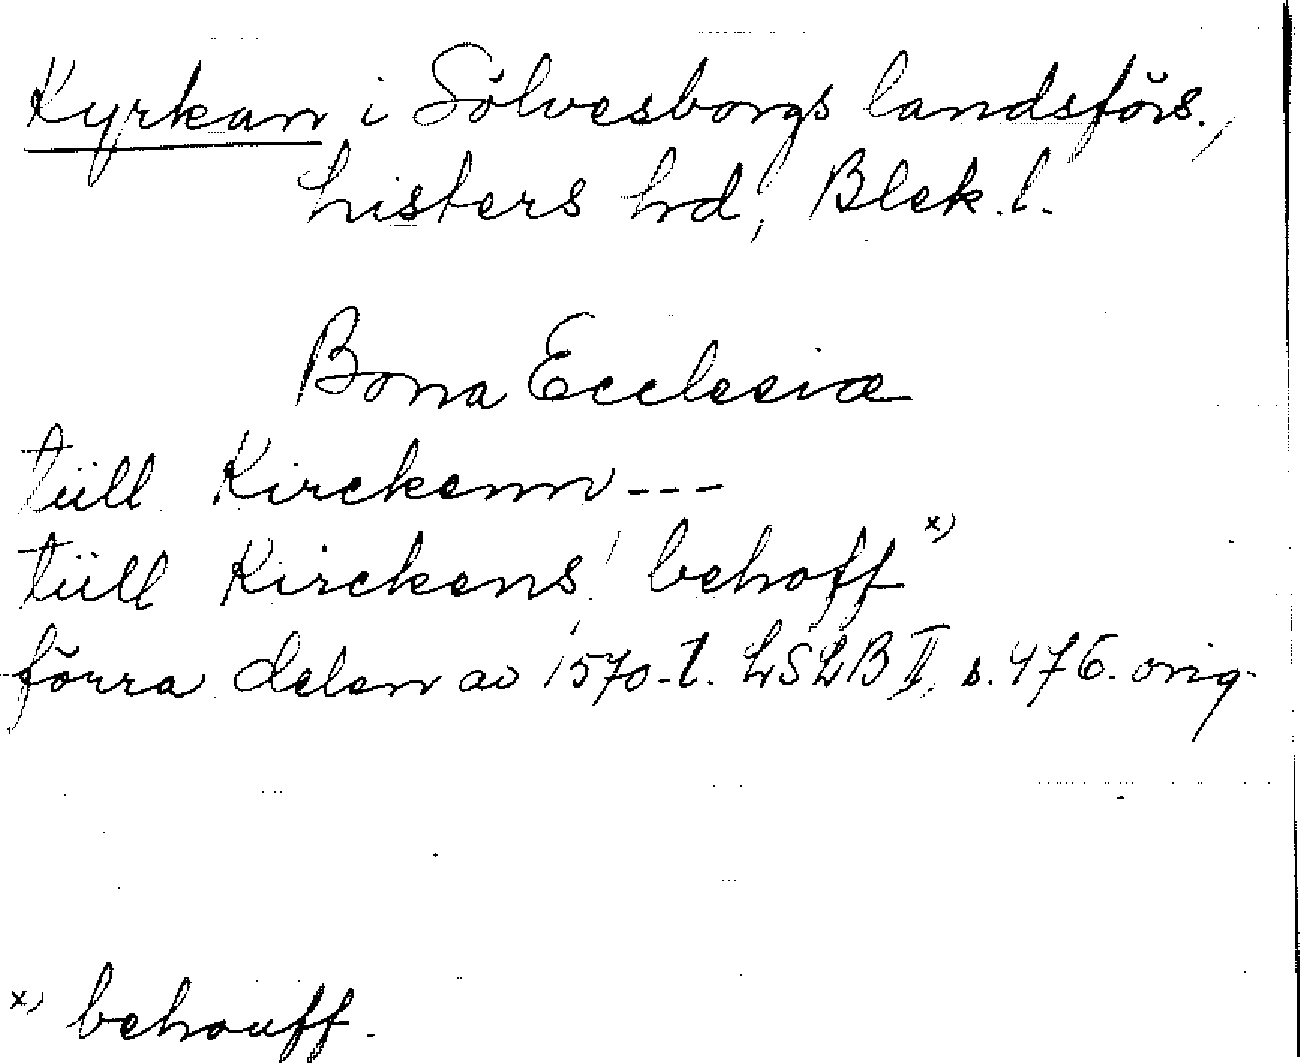 Kyrkan i Sölvesborgs landsförs.,
Listers hd, Blek. l.
Bona Ecclesiæ
tiill Kirckenn ---
tiill Kirckens behoff x)
förra delen av 1570-t. LSLB II, s. 476. orig.
x) behouff.